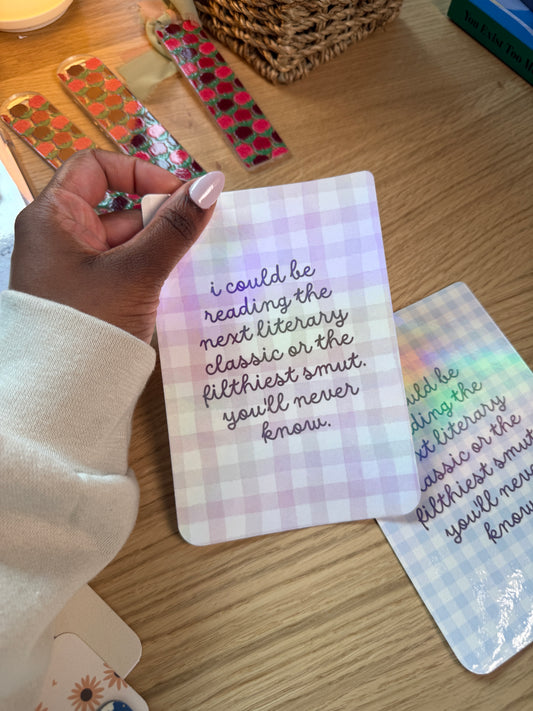 You Exist Too M
i could be
reading the
next literary
classic or the
filthiest smut.
you'll never
know.
uld be
ding the
t literary
lassic or the
filthiest smut
you'll neve
know.